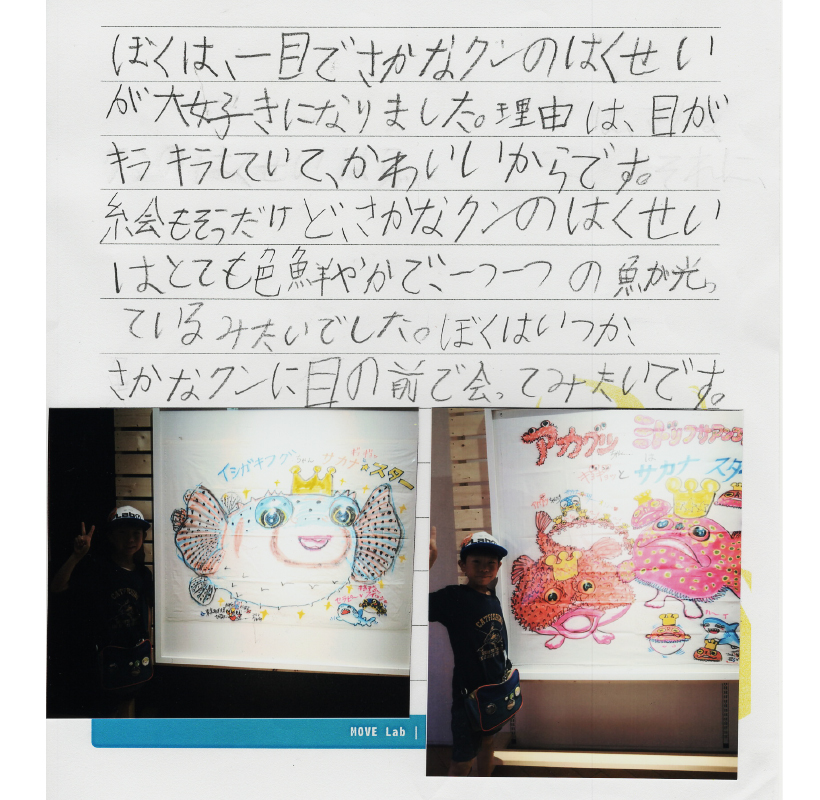 ぼくは、一目でさかなクンのはくせい
が大好きになりました。理由は、目が
キラキラしていて、かわいいからです。
絵もそうだけど、さかなクンのはくせい
は、とても色鮮やかで、一つ一つの魚が光っ
ているみたいでした。ぼくはいつか、
さかなクンに目の前で会ってみたいです。
イシガキフグ
ちゃん
サカナ
スター
アカグツ
サカナ スター
MOVE Lab |